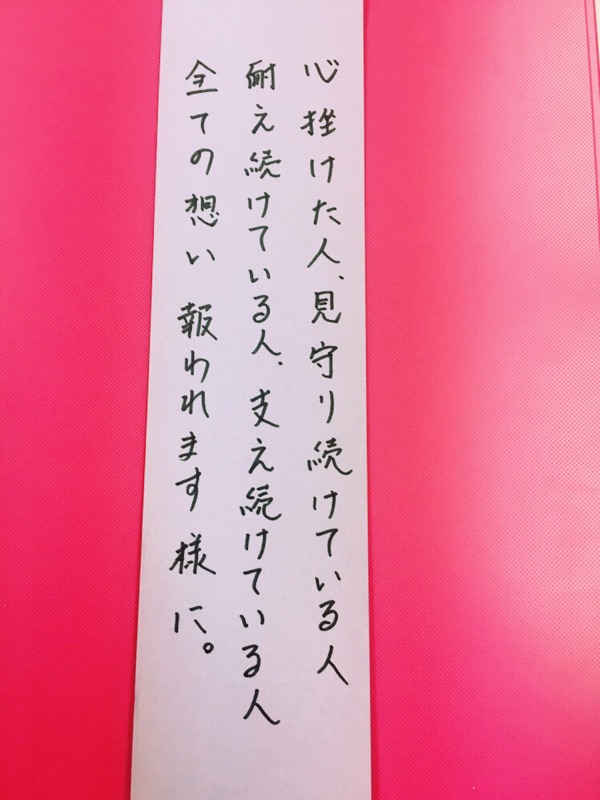 心挫けた人、見守り続けている人
耐え続けている人、支え続けている人
全ての想い 報われます様に。